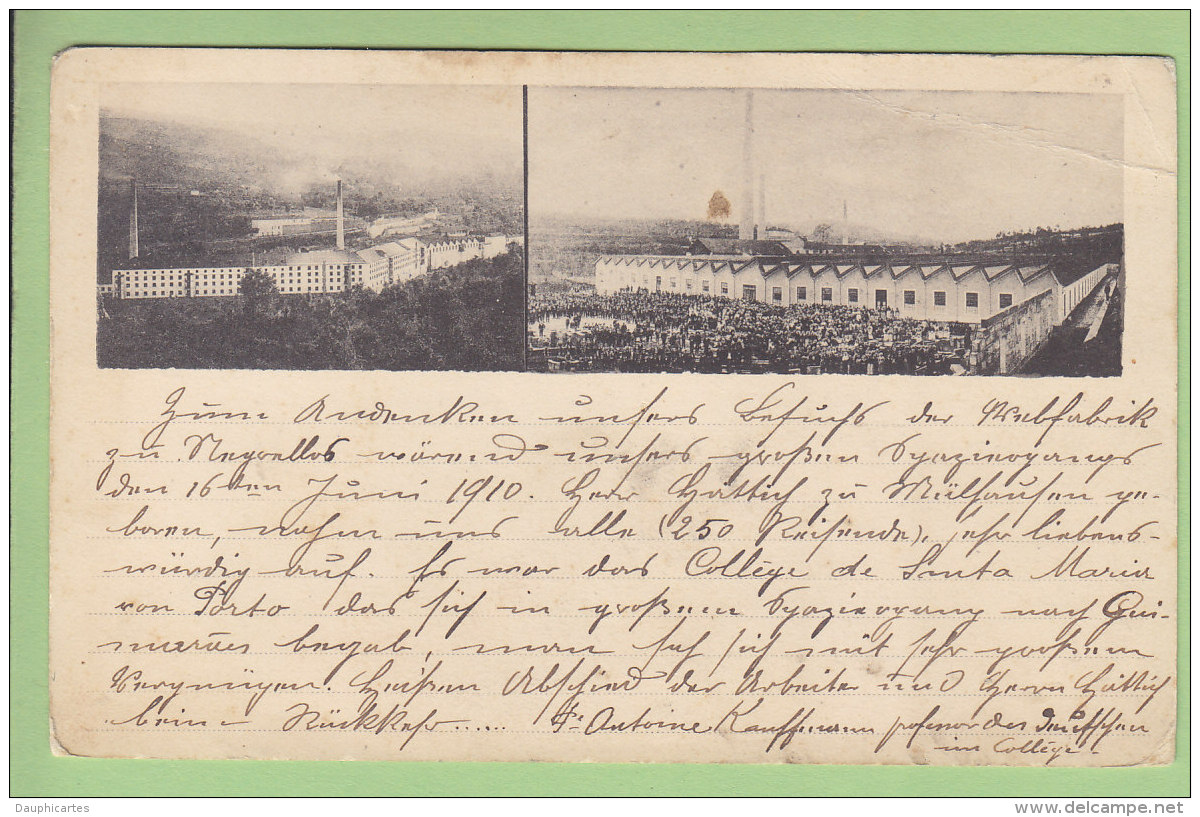 Zum Andenken unsers Besuchs der Webfabrik
zu Negrellos wärend unsers großen Spaziergangs
den 16ten Juni 1910. Herr Hättich zu Mülhausen ge-
boren, nahm uns alle (250 Reisende), sehr liebens-
würdig auf. Es war das Collège de Santa Maria
von Porto das sich in großem Spaziergang nach Gui-
marães begab, man sich mit sehr großem
Vergnügen. Heißen Abschied der Arbeiter und Herrn Hättich
beim Rückkehr ..... Fr. Antoine Kauffmann professor des Deutschen
im Collège.
Dauphicartes
www.delcampe.net